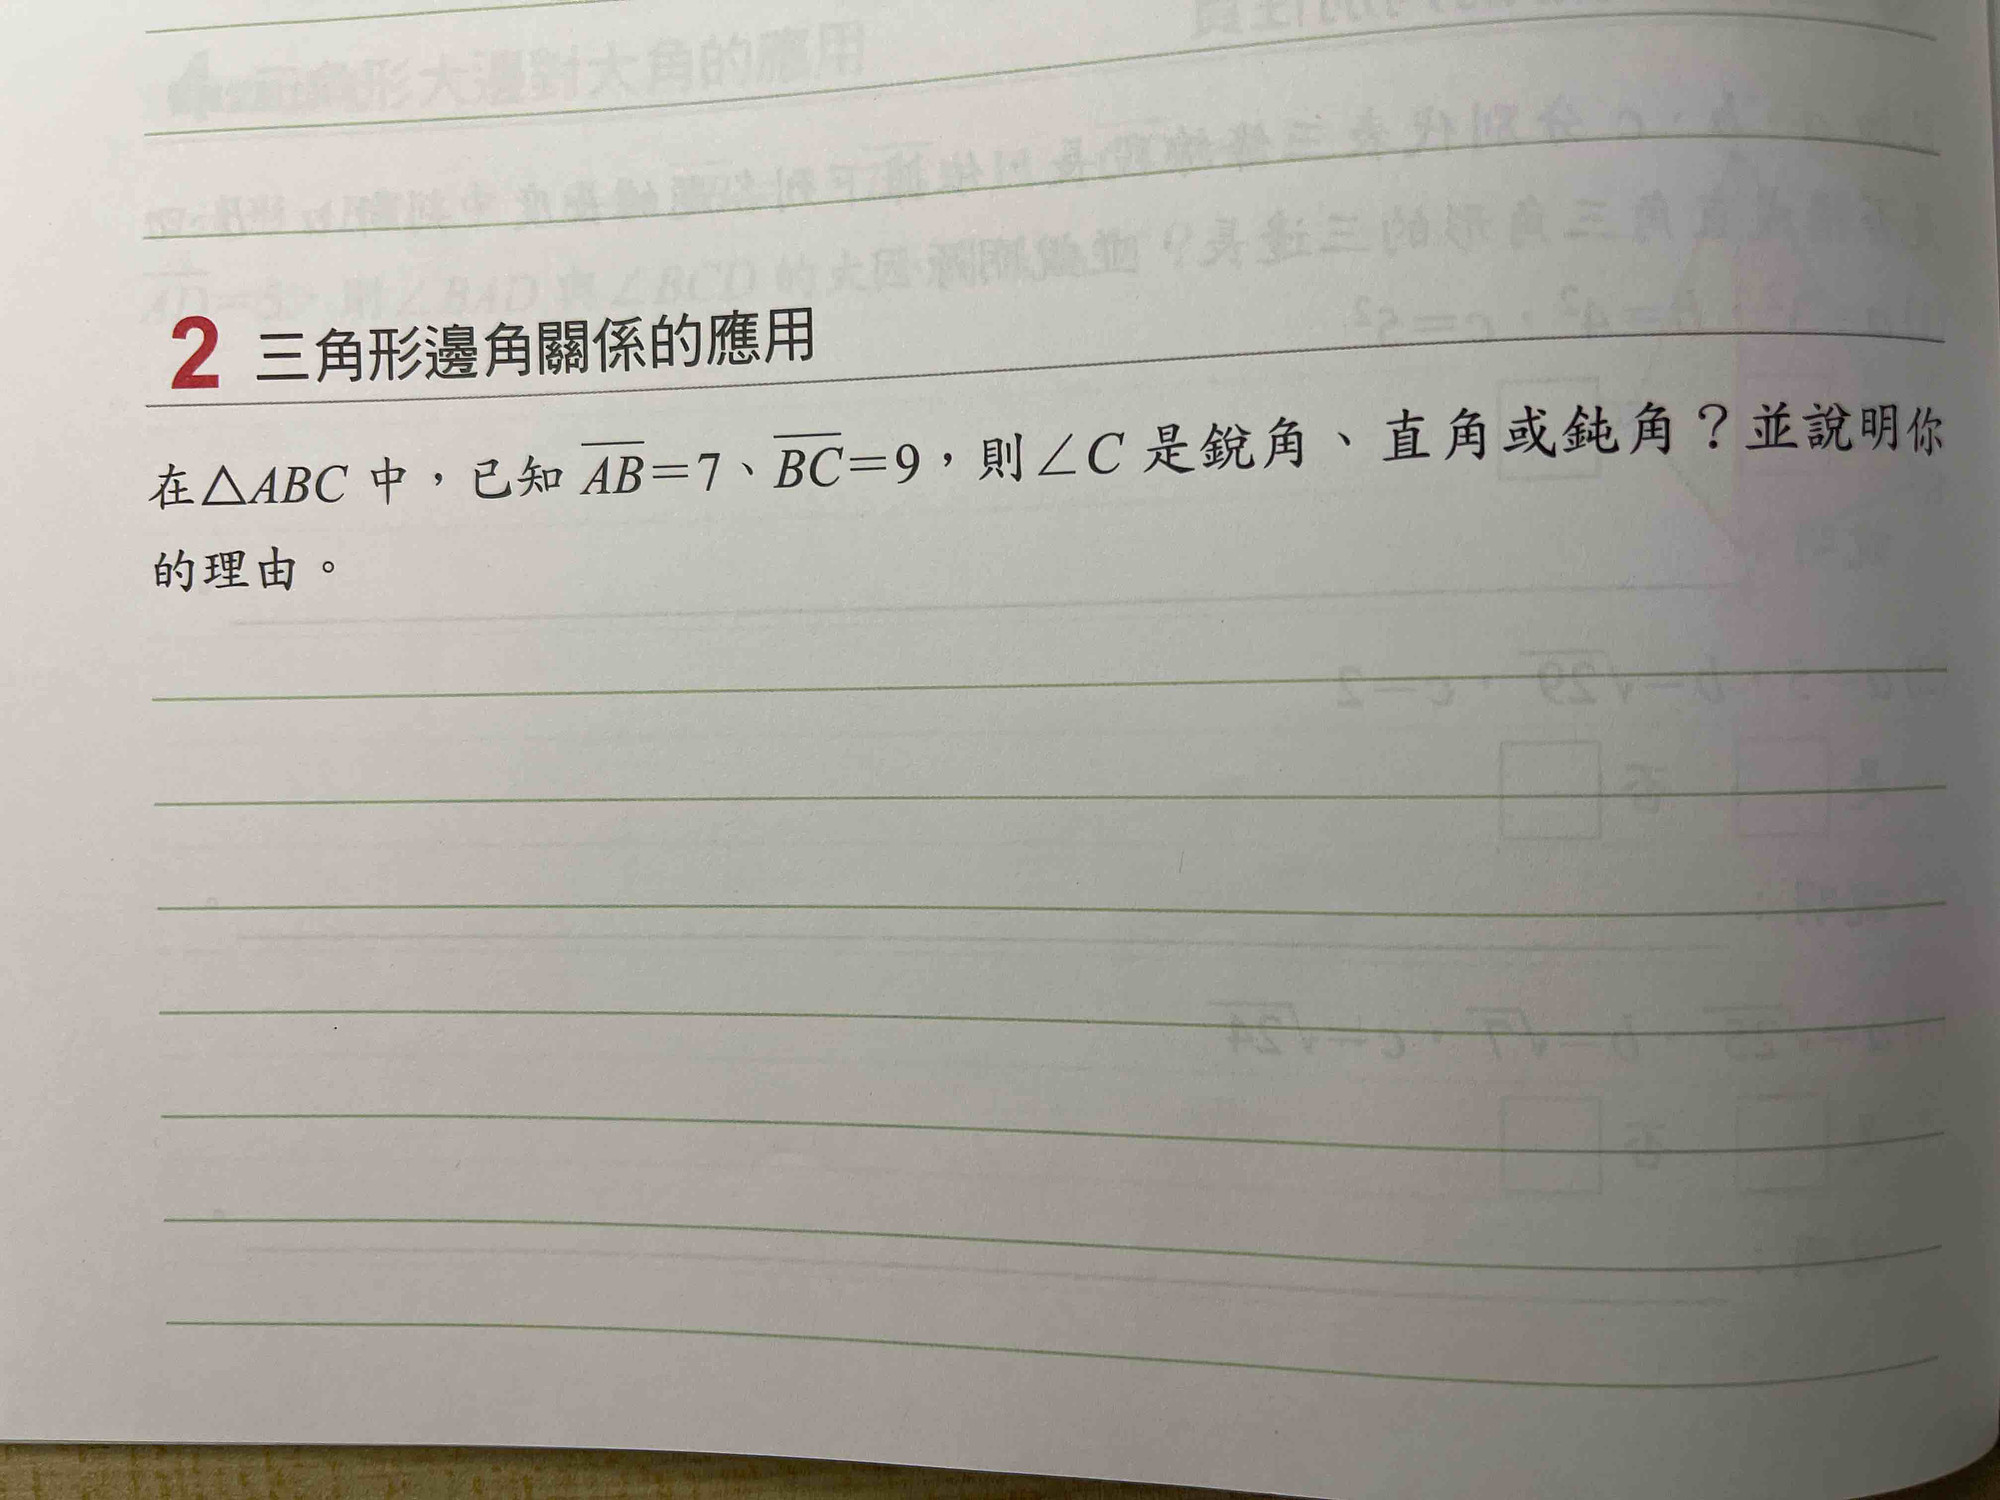 2 三角形邊角關係的應用
在△ABC 中，已知 \overline{AB}=7、\overline{BC}=9，則∠C 是銳角、直角或鈍角？並說明你
的理由。